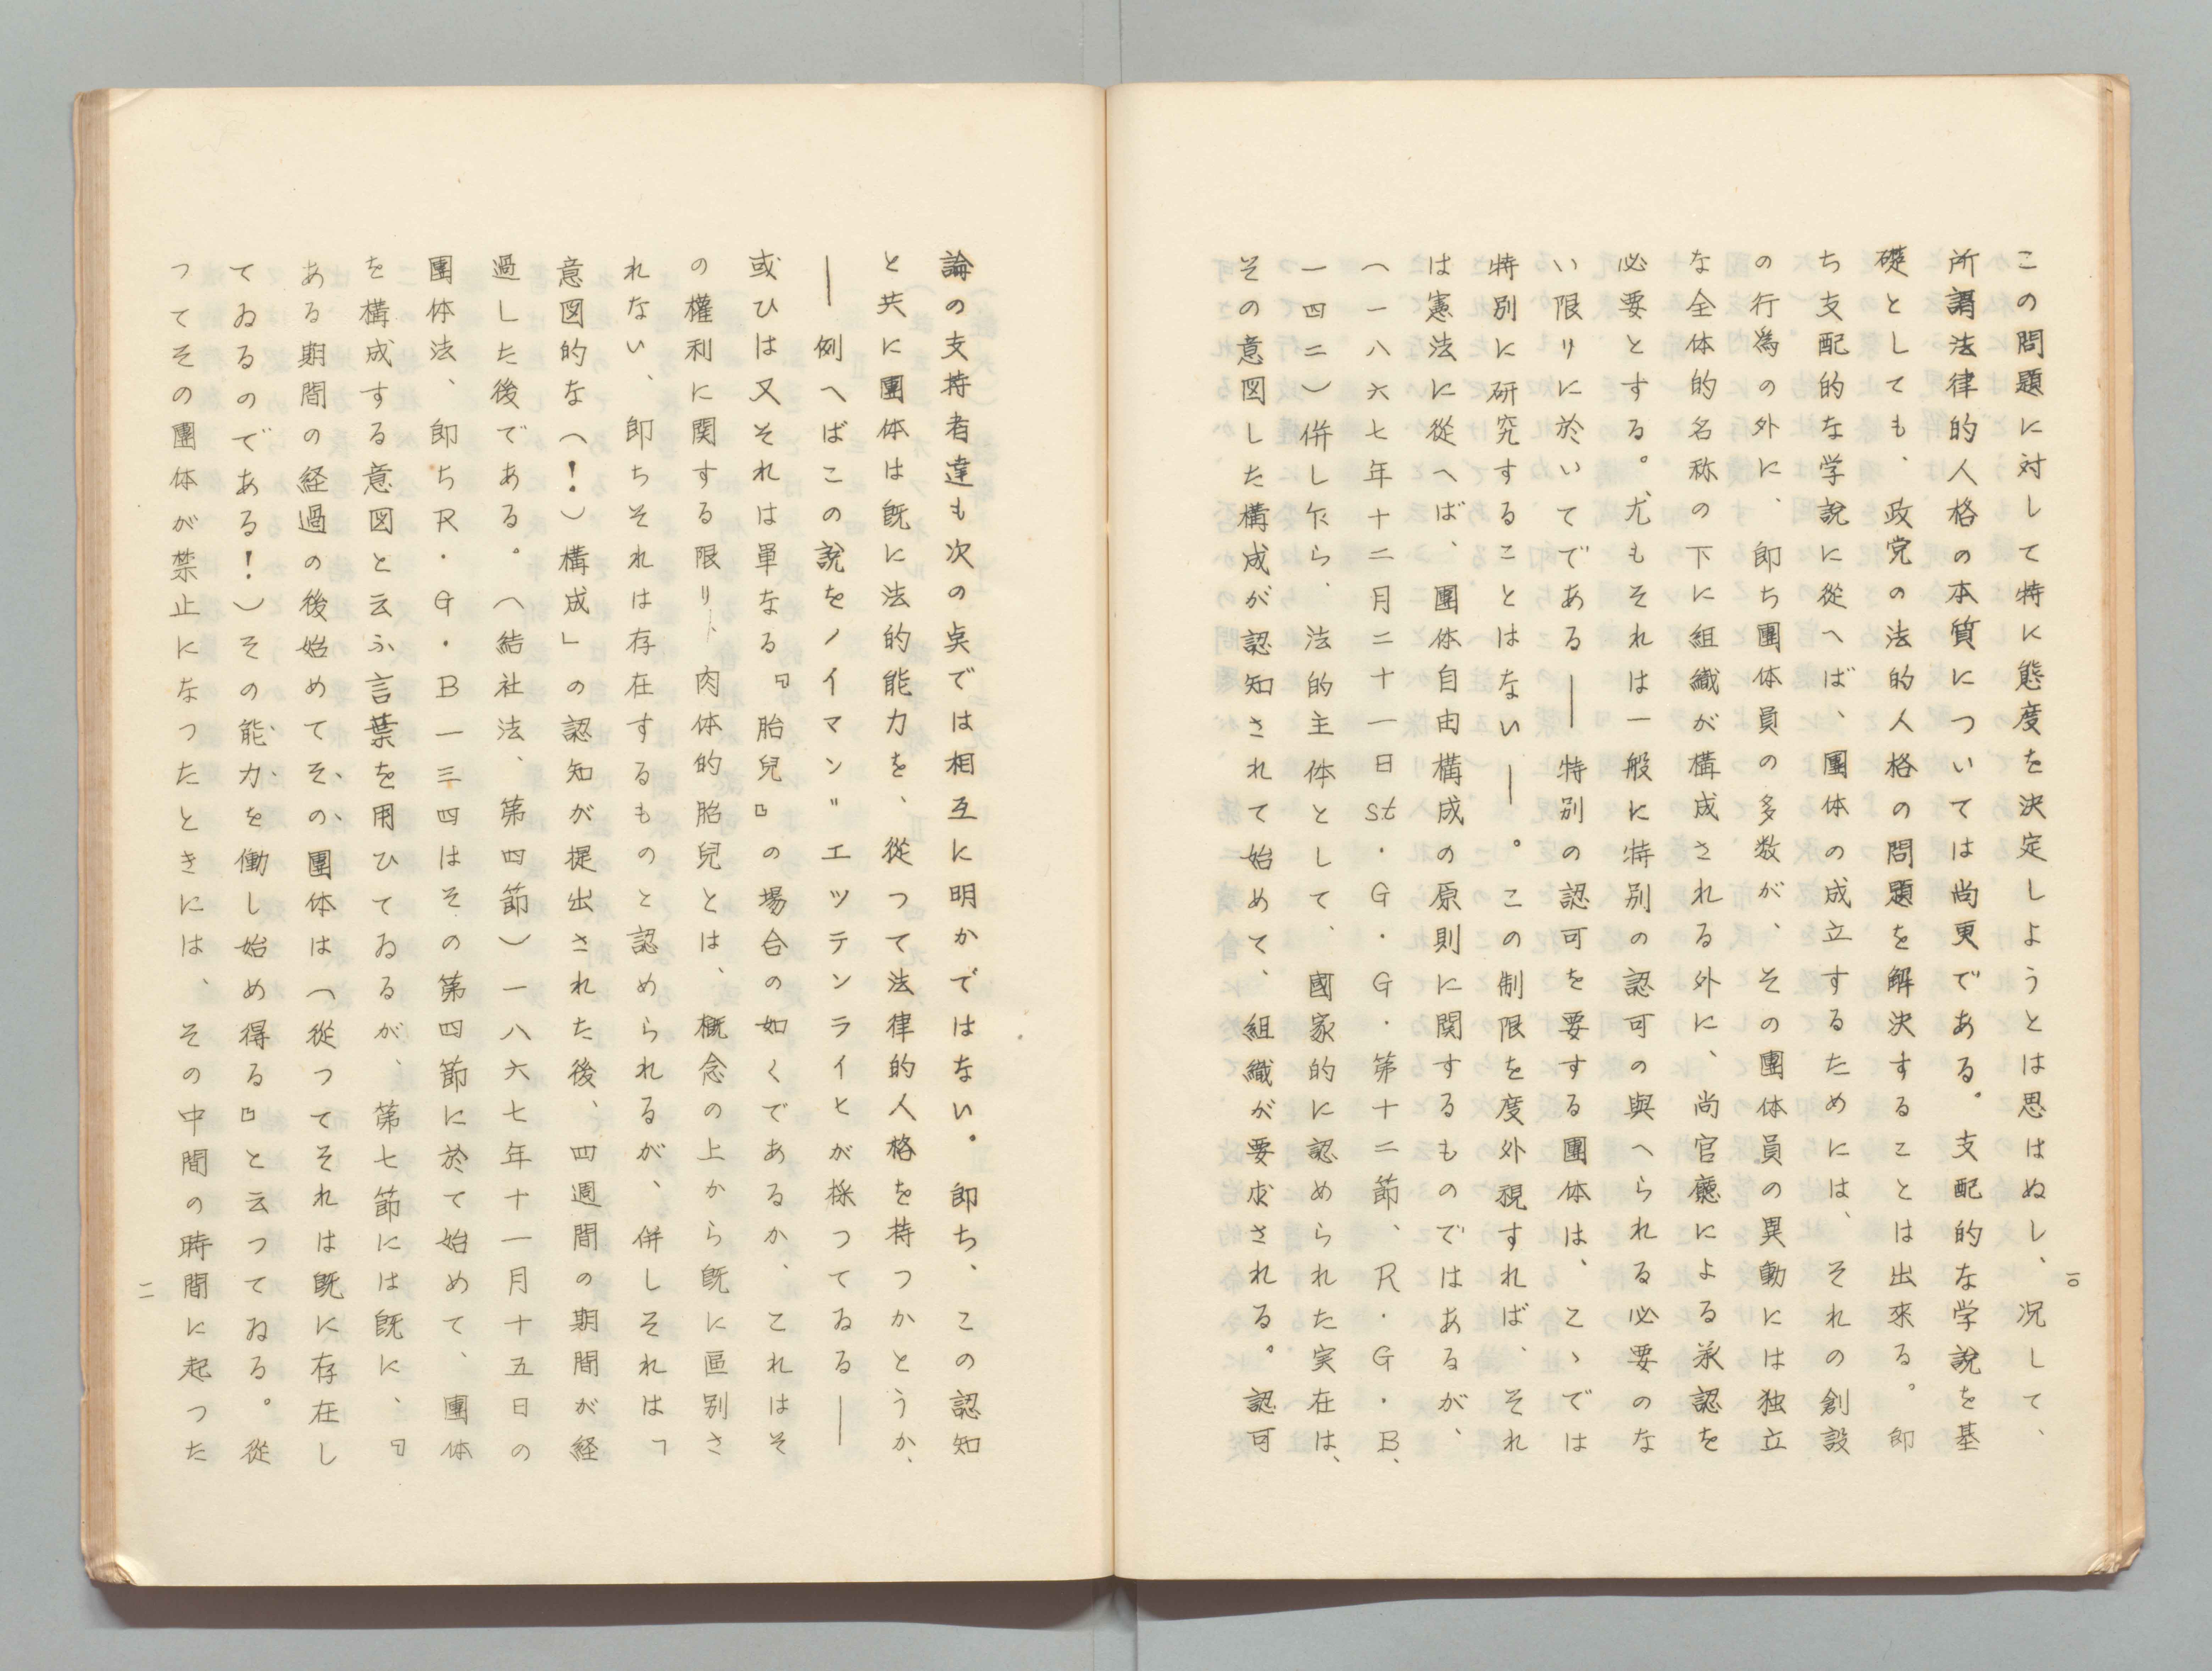 この問題に対して特に態度を決定しようとは思はぬし、况して、
所謂法律的人格の本質については尚更である。支配的な学説を基
礎としても、政党の法的人格の問題を解決することは出來る。即
ち支配的な学説に從へば、團体の成立するためには、それの創設
の行為の外に、即ち團体員の多数が、その團体員の異動には独立
な全体的名称の下に組織が構成される外に、尚官廳による承認を
必要とする。尤もそれは一般に特別の認可の與へられる必要のな
い限りに於いてである――特別の認可を要する團体は、こゝでは
特別に研究することはない――。この制限を度外視すれば、それ
は憲法に從へば、團体自由構成の原則に関するものではあるが、
(一八六七年十二月二十一日St・G・G・第十二節、R・G・B、
一四二)併し乍ら、法的主体として、國家的に認められた実在は、
その意図した構成が認知されて始めて、組織が要求される。認可
一〇
論の支持者達も次の点では相互に明かではない。即ち、この認知
と共に團体は既に法的能力を、從つて法律的人格を持つかとうか、
――例へばこの説をノイマン〃エツテンライとが採つてゐる――
或ひは又それは単なる『胎兒』の場合の如くであるか、これはそ
の權利に関する限り、肉体的胎兒とは、概念の上から既に區別さ
れない、即ちそれは存在するものと認められるが、併しそれは「
意図的な(！)構成」の認知が提出された後、四週間の期間が経
過した後である。(結社法、第四節)一八六七年十一月十五日の
團体法、即ちR・G・B一三四はその第四節に於て始めて、團体
を構成する意図と云ふ言葉を用ひてゐるが、第七節には既に、『
ある期間の経過の後始めてその團体は(從つてそれは既に存在し
てゐるのである！)その能力を働し始め得る』と云つてゐる。從
つてその團体が禁止になつたときには、その中間の時間に起つた
一一